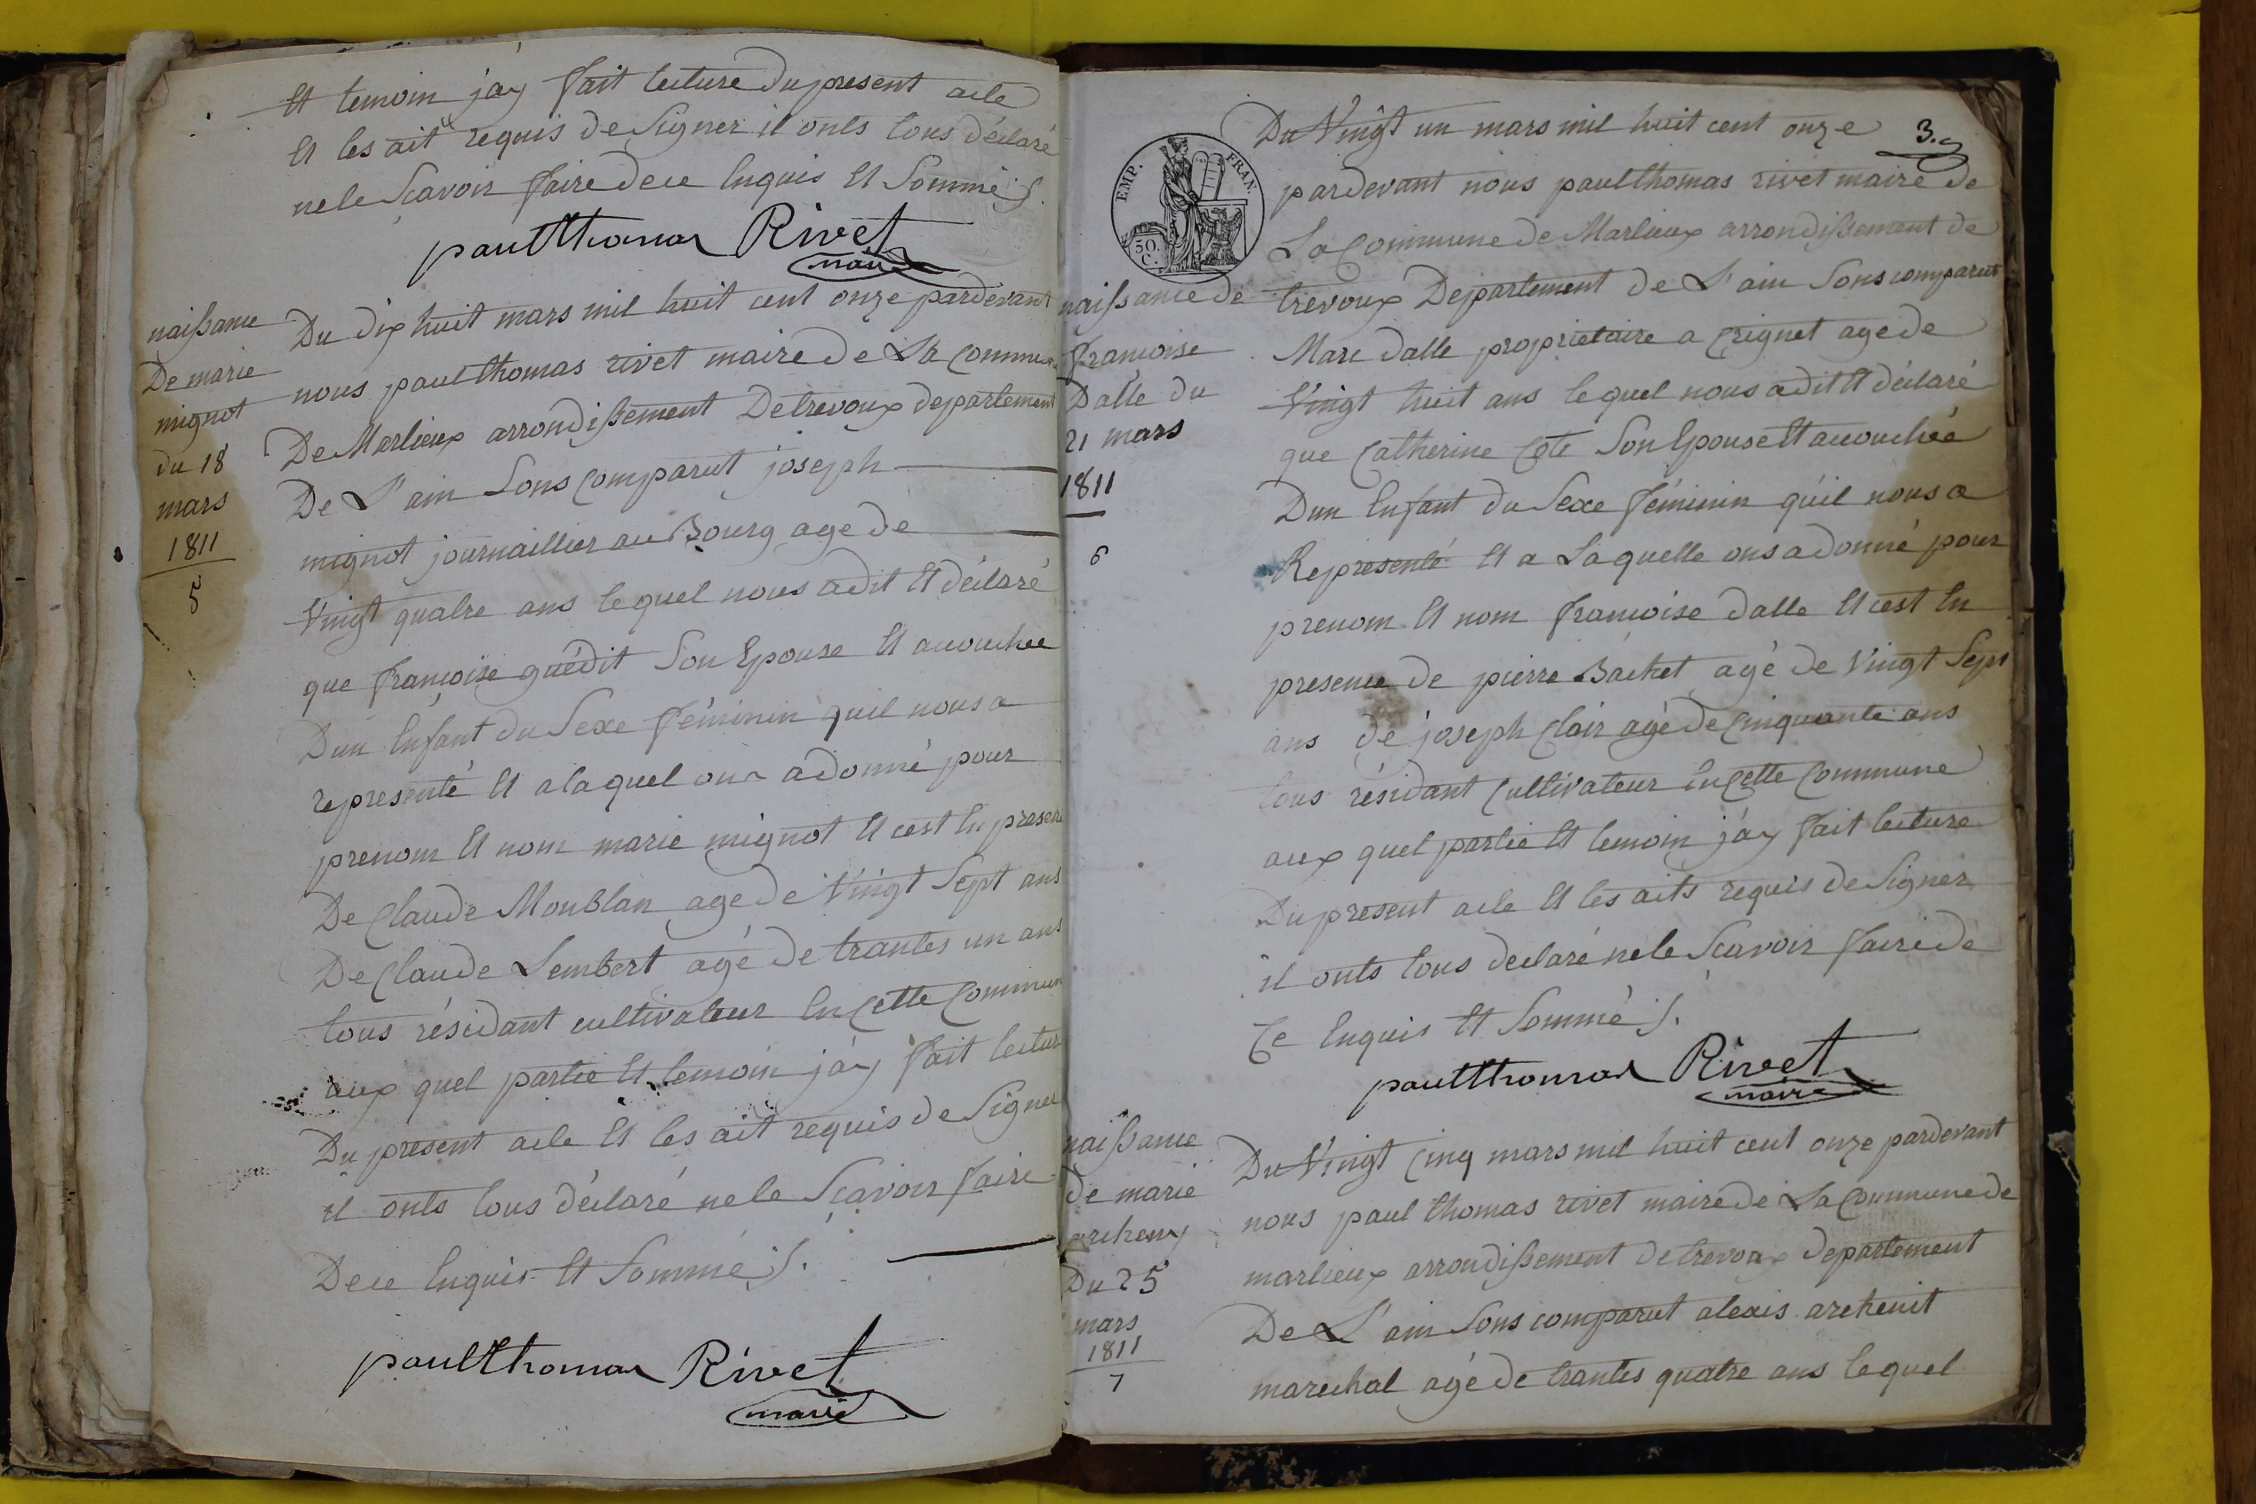 Et temoin j'ay fait lecture du present acte
Et les ait requis de signer il onts tous déclaré
ne le scavoir faire de ce Enquis Et Sommé S.
paul thomas Rivet
maire
naissance
De marie
mignot
du 18
mars
1811
5
Du dix huit mars mil huit cent onze pardevant
nous paul thomas rivet maire de La Commu
De Marlieux arrondissement De trevoux departement
De L'ain Sons Comparut joseph
mignot journaillier au Bourg age de
Vingt quatre ans lequel nous a dit Et déclaré
que françoise guédit Son Epouse Et accouchee
Dun Enfant du Sexe féminin quil nous a
representé Et a laquel on a donné pour
prenom Et nom marie mignot Et cest En presen
De Claude Moublan age de Vingt Sept ans
De Claude Lembert agé de trantes un ans
tous résidant cultivateur En Cette Commun
aux quel partie Et temoin j'ay fait lectur
Du present acte Et les ait requis de Signer
il onts tous déclaré ne le Scavoir faire
De ce Enquis Et Sommé S.
paul thomas Rivet
maire
3.
EMP. FRAN.
50.
C.
naissance de
françoise
Dalle du
21 mars
1811
6
Du Vingt un mars mil huit cent onze
pardevant nous paul thomas rivet maire de
La Commune de Marlieux arrondissement de
trevoux Departement de L'ain Sons comparut
Marc dalle proprietaire a Crignet age de
Vingt huit ans lequel nous a dit Et déclaré
que Catherine Cote Son Epouse Et accouchée
Dun Enfant du Sexe féminin qu'il nous a
Representé Et a Laquelle ons a donné pour
prenom Et nom francoise dalle Et cest En
presence de pierre Bachet agé de Vingt Sept
ans de joseph Clair agé de Cinquante ans
tous résidant Cultivateur En Cette Commune
aux quel partie Et temoin j'ay fait lecture
Du present acte Et les aits requis de Signer
il onts tous declaré ne le Scavoir faire de
Ce Enquis Et Sommé S.
paul thomas Rivet
maire
naissance
de marie
archeny
Du 25
mars
1811
7
Du Vingt Cinq mars mil huit cent onze pardevant
nous paul thomas rivet maire de La Commune de
marlieux arrondissement de trevoux departement
De L'ain Sons comparut alexis archenit
marechal agé de trantes quatre ans lequel